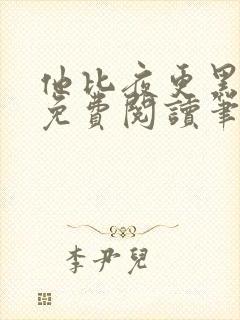 他比夜更黑
免費閱讀筆
李尹兒